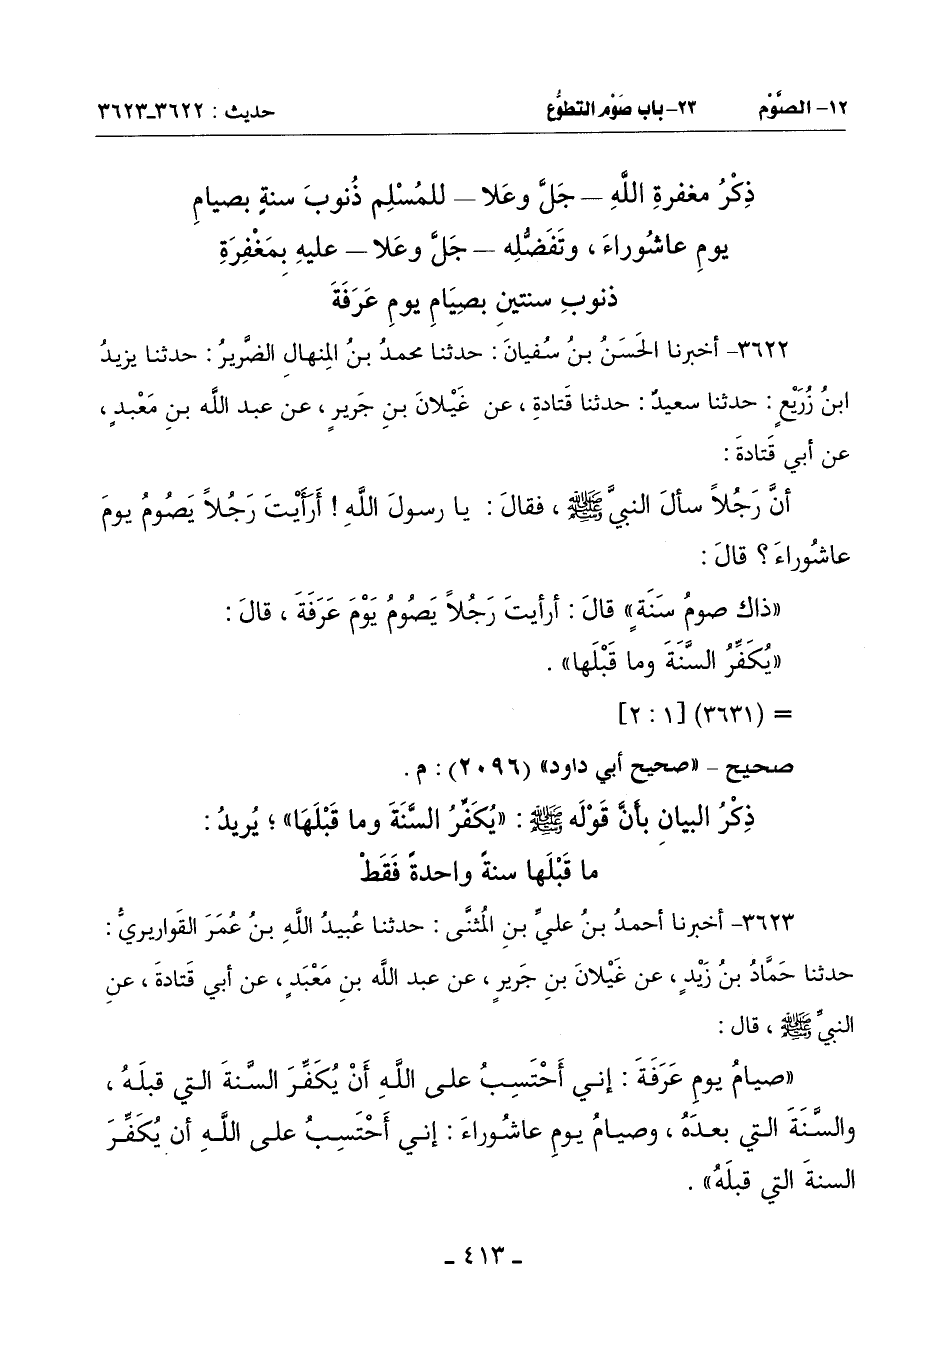 ١٢- الصَّوْم ٢٣- باب صَوْم التطوُّع حديث : ٣٦٢٢-٣٦٢٣
ذِكْرُ مغفرةِ اللَّهِ – جَلَّ وعَلا – للمُسْلِم ذُنوبَ سنةٍ بصيامِ
يومِ عاشُوراءَ ، وتَفَضُّلِه – جَلَّ وعَلا – عليهِ بِمَغْفِرَةِ
ذنوبِ سنتينِ بصِيَامِ يومِ عَرَفَةَ
٣٦٢٢- أخبرنا الحَسَنُ بنُ سُفيانَ : حدثنا محمدُ بنُ المِنهال الضَّريرُ : حدثنا يزيدُ
ابنُ زُرَيْعٍ : حدثنا سعيدٌ : حدثنا قَتادةِ ، عن غَيْلانَ بنِ جَريرٍ ، عن عبد اللَّه بنِ مَعْبدٍ ،
عن أبي قَتادةَ :
أنَّ رَجُلاً سألَ النبيَّ ﷺ ، فقالَ : يا رسولَ اللَّهِ ! أَرَأَيْتَ رَجُلاً يَصُومُ يومَ
عاشُوراءَ ؟ قالَ :
«ذاك صومُ سَنَةٍ» قالَ : أرأيتَ رَجُلاً يَصُومُ يَوْمَ عَرَفَةَ ، قالَ :
«يُكَفِّرُ السَّنَةَ وما قَبْلَها» .
= (٣٦٣١) [١ : ٢]
صحيح – «صحيح أبي داود» (٢٠٩٦) : م .
ذِكْرُ البيانِ بأنَّ قَوْلَه ﷺ : «يُكَفِّرُ السَّنَةَ وما قَبْلَهَا» ؛ يُريدُ :
ما قَبْلَها سنةً واحدةً فَقَطْ
٣٦٢٣- أخبرنا أحمدُ بنُ عليِّ بنِ المُثنَّى : حدثنا عُبيدُ اللَّهِ بنُ عُمَرَ القَواريريُّ :
حدثنا حَمَّادُ بنُ زَيْدٍ ، عن غَيْلانَ بنِ جَريرٍ ، عن عبد اللَّه بنِ مَعْبَدٍ ، عن أبي قَتادةَ ، عنِ
النبيِّ ﷺ ، قال :
«صيامُ يومِ عَرَفَةَ : إني أَحْتَسِبُ على اللَّهِ أَنْ يُكَفِّرَ السَّنةَ التي قبلَهُ ،
والسَّنَةَ التي بعدَهُ ، وصيامُ يومِ عاشُوراءَ : إني أَحْتَسِبُ على اللَّهِ أن يُكَفِّرَ
السنةَ التي قبلَهُ» .
ـ ٤١٣ ـ